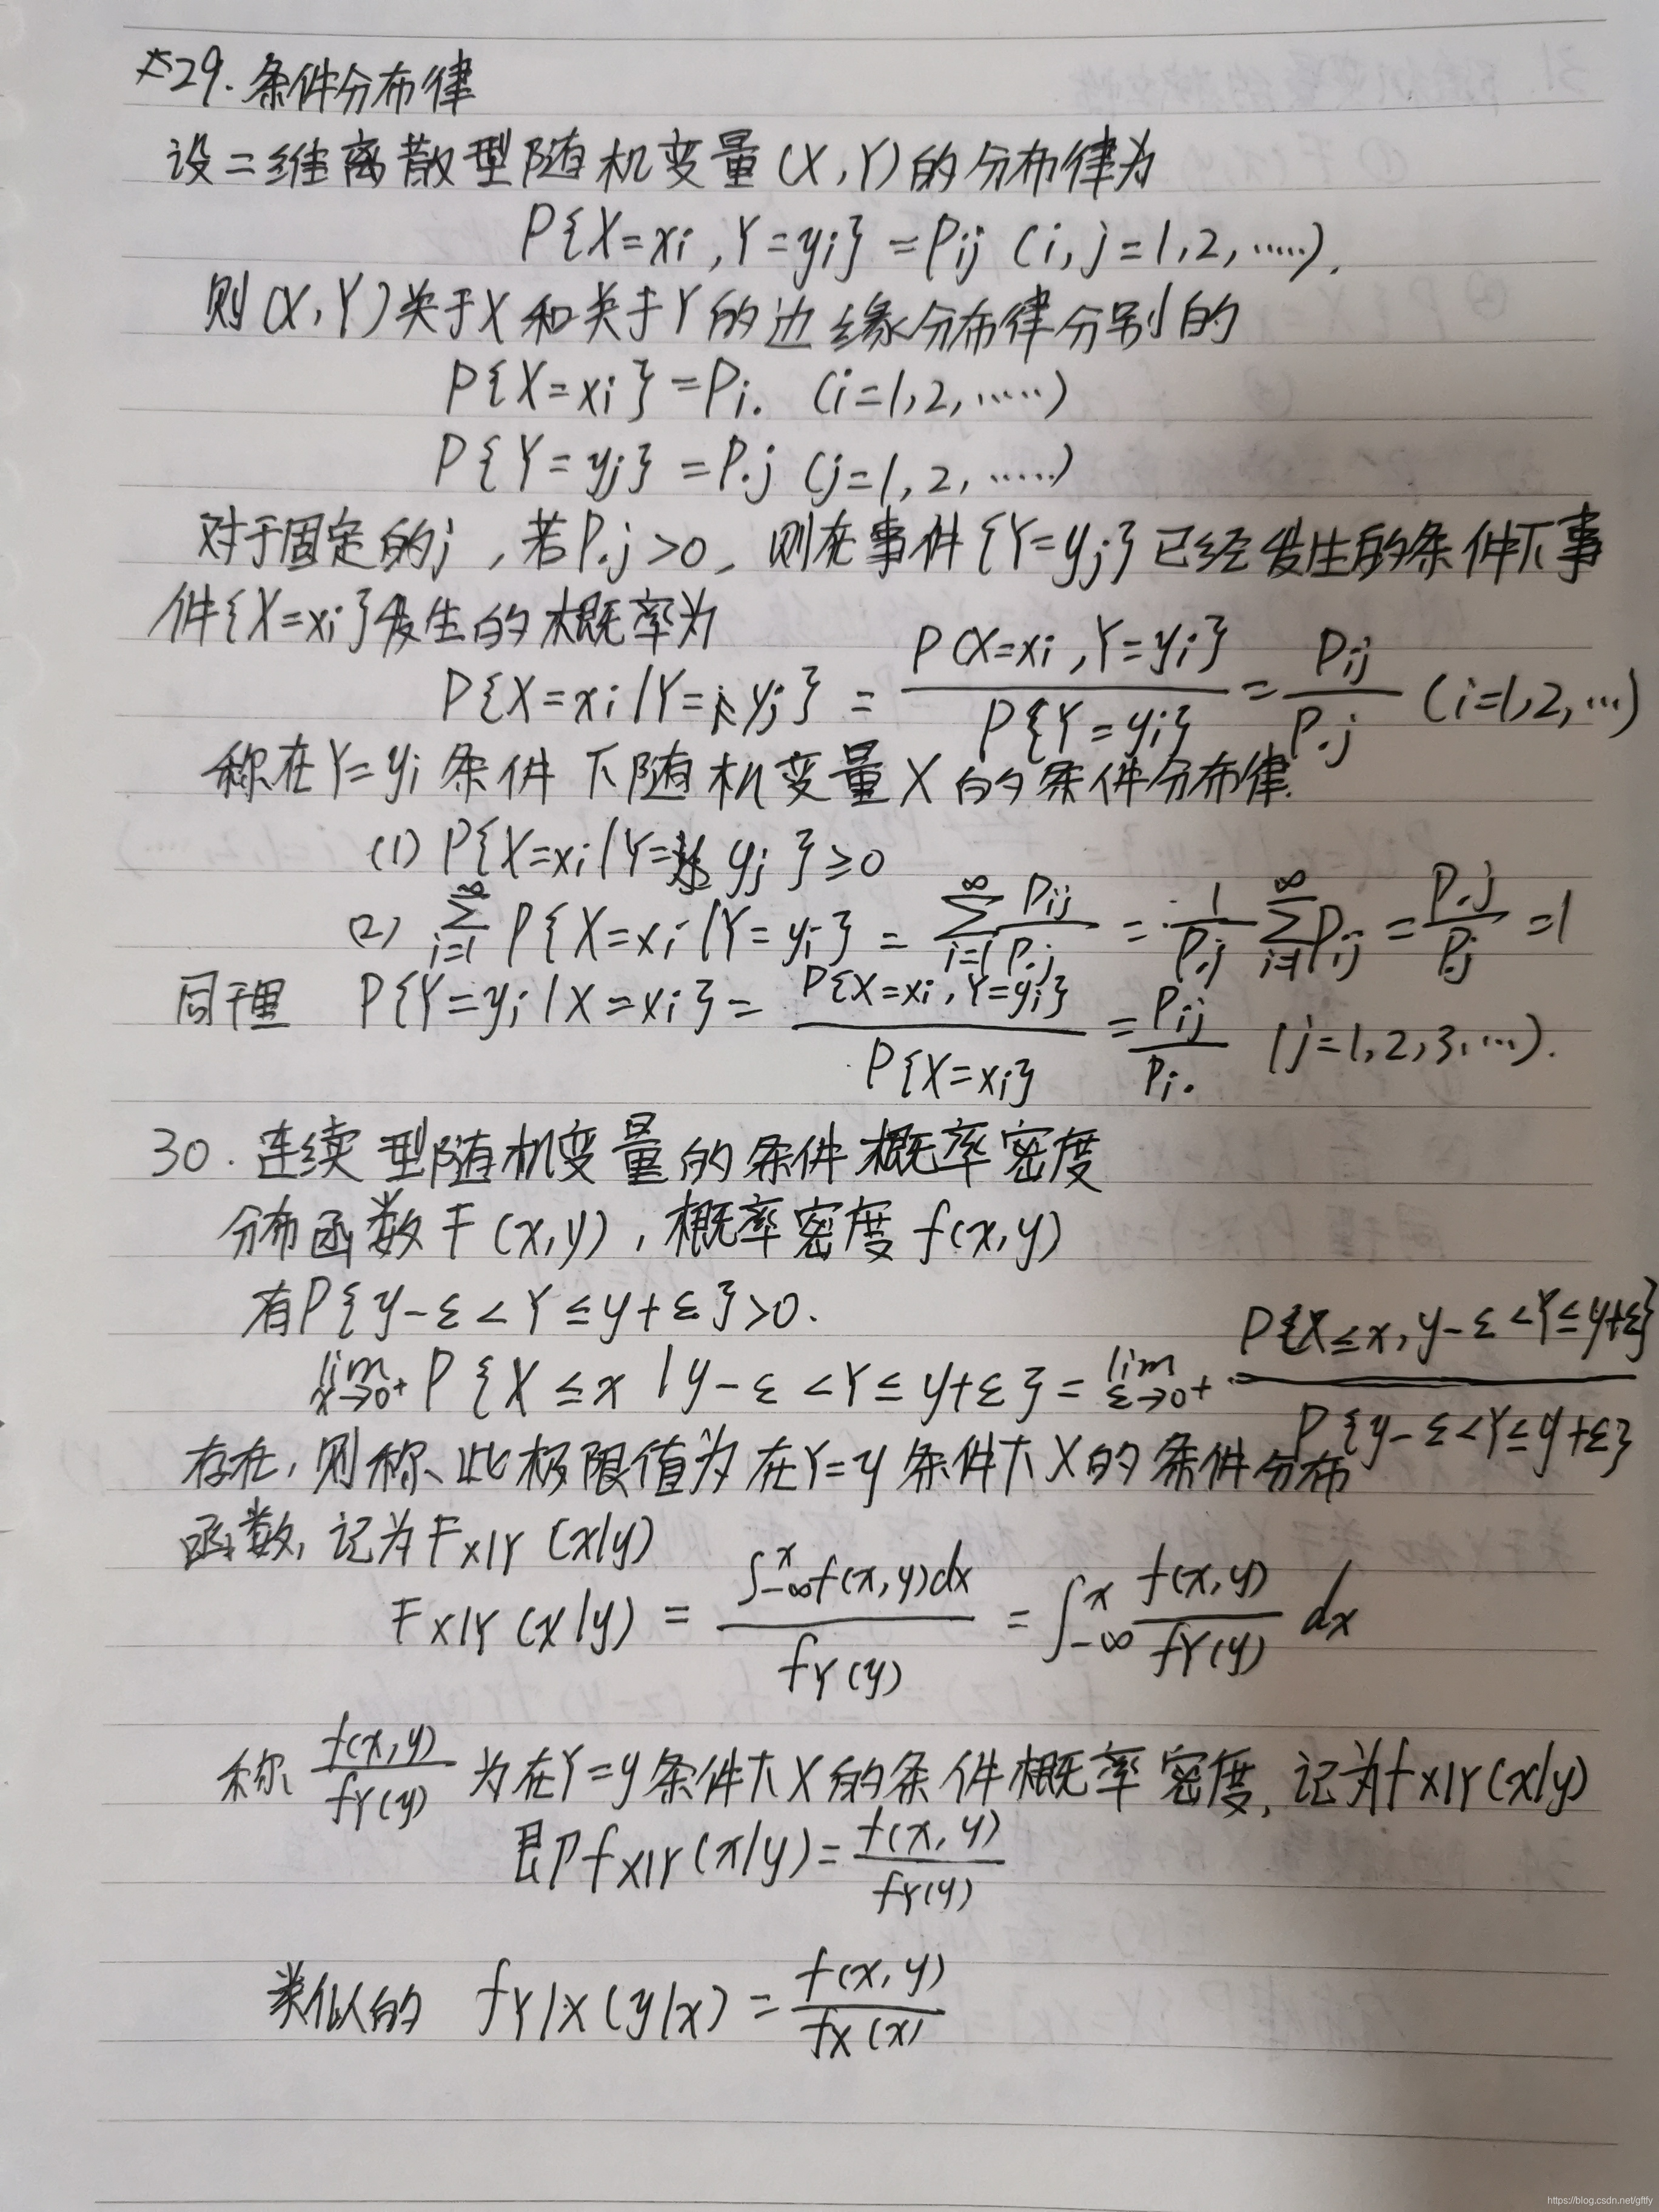 *29. 条件分布律
设二维离散型随机变量(X,Y)的分布律为
P{X=xi,Y=yi}=Pij (i,j=1,2,……).
则(X,Y)关于X和关于Y的边缘分布律分别的
P{X=xi}=Pi. (i=1,2,……)
P{Y=yj}=P.j (j=1,2,……)
对于固定的j,若P.j>0,则在事件{Y=yj}已经发生的条件下事
件{X=xi}发生的概率为
P{X=xi|Y=yj}=P(X=xi,Y=yi}/P{Y=yi}=Pij/P.j (i=1,2,…)
称在Y=yi条件下随机变量X的条件分布律.
(1) P{X=xi|Y=yj}≥0
(2) ∑_{i=1}^{∞} P{X=xi|Y=yi}=∑_{i=1}^{∞} Pij/P.j=1/P.j ∑_{i=1}^{∞} Pij=P.j/P.j=1
同理 P{Y=yi|X=xi}=P{X=xi,Y=yi}/P{X=xi}=Pij/Pi. (j=1,2,3,…).
30.连续型随机变量的条件概率密度
分布函数F(x,y),概率密度f(x,y)
有P{y-ε<Y≤y+ε}>0.
lim_{x→0+} P{X≤x|y-ε<Y≤y+ε}=lim_{ε→0+} P{X≤x,y-ε<Y≤y+ε}/P{y-ε<Y≤y+ε}
存在,则称此极限值为在Y=y条件下X的条件分布
函数,记为F_{X|Y}(x|y)
F_{X|Y}(x|y)=∫_{-∞}^{x} f(x,y)dx/f_Y(y)=∫_{-∞}^{x} f(x,y)/f_Y(y) dx
称 f(x,y)/f_Y(y) 为在Y=y条件下X的条件概率密度,记为f_{X|Y}(x|y)
即f_{X|Y}(x|y)=f(x,y)/f_Y(y)
类似的 f_{Y|X}(y|x)=f(x,y)/f_X(x)
https://blog.csdn.net/gftfy